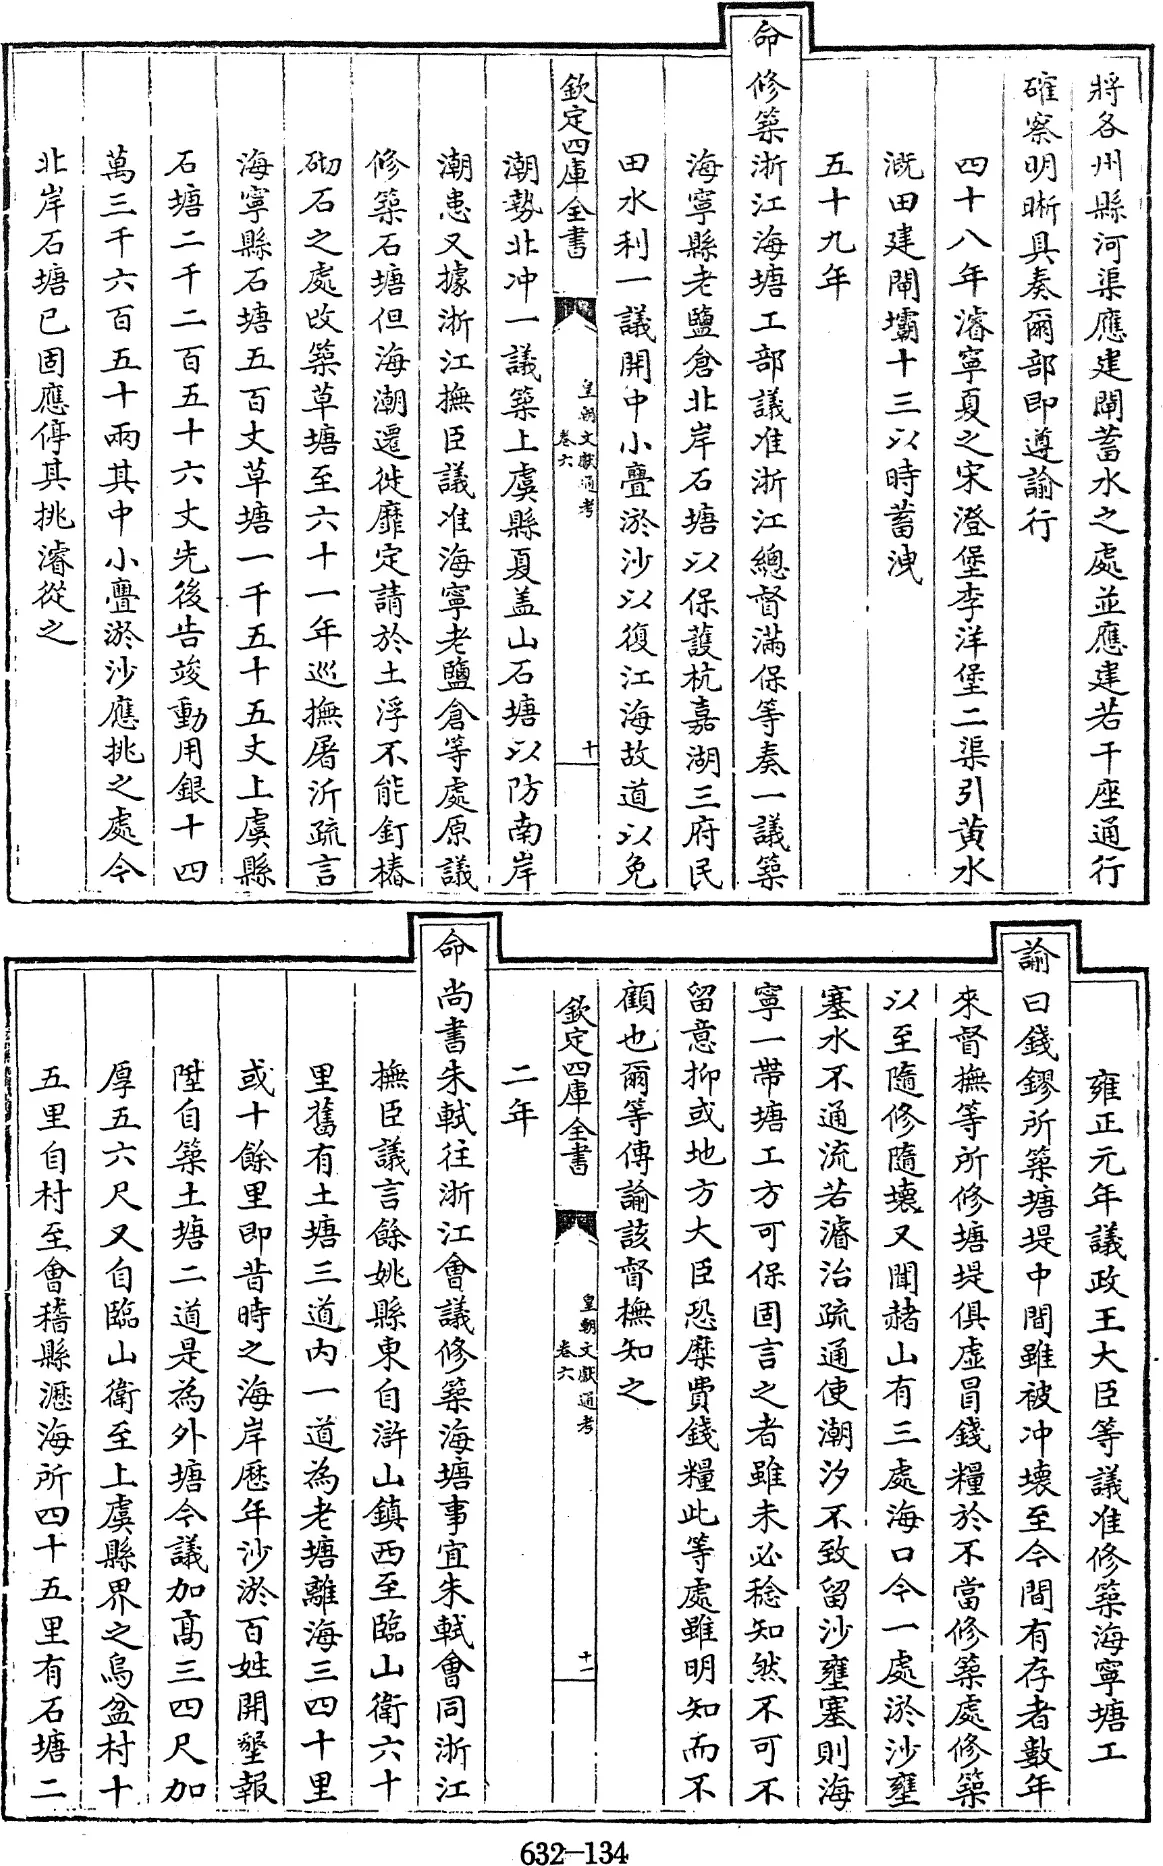 將各州縣河渠應建閘蓄水之處並應建若干座通行
確察明晰具奏爾部即遵諭行
四十八年濬寧夏之宋澄堡李洋堡二渠引黃水
溉田建閘壩十三以時蓄洩
五十九年
命修築浙江海塘工部議准浙江總督滿保等奏一議築
海寧縣老鹽倉北岸石塘以保護杭嘉湖三府民
田水利一議開中小亹淤沙以復江海故道以免
欽定四庫全書
皇朝文獻通考
卷六
十
潮勢北冲一議築上虞縣夏盖山石塘以防南岸
潮患又據浙江撫臣議准海寧老鹽倉等處原議
修築石塘但海潮遷徙靡定請於土浮不能釘樁
砌石之處改築草塘至六十一年巡撫屠沂疏言
海寧縣石塘五百丈草塘一千五十五丈上虞縣
石塘二千二百五十六丈先後告竣動用銀十四
萬三千六百五十兩其中小亹淤沙應挑之處今
北岸石塘已固應停其挑濬從之
雍正元年議政王大臣等議准修築海寧塘工
諭曰錢鏐所築塘堤中間雖被冲壞至今間有存者數年
來督撫等所修塘堤俱虛冒錢糧於不當修築處修築
以至隨修隨壞又聞赭山有三處海口今一處淤沙壅
塞水不通流若濬治疏通使潮汐不致留沙壅塞則海
寧一帶塘工方可保固言之者雖未必稔知然不可不
留意抑或地方大臣恐糜費錢糧此等處雖明知而不
顧也爾等傳諭該督撫知之
欽定四庫全書
皇朝文獻通考
卷六
十一
二年
命尚書朱軾往浙江會議修築海塘事宜朱軾會同浙江
撫臣議言餘姚縣東自滸山鎮西至臨山衛六十
里舊有土塘三道內一道為老塘離海三四十里
或十餘里即昔時之海岸歷年沙淤百姓開墾報
陞自築土塘二道是為外塘今議加高三四尺加
厚五六尺又自臨山衛至上虞縣界之烏盆村十
五里自村至會稽縣瀝海所四十五里有石塘二
632-134